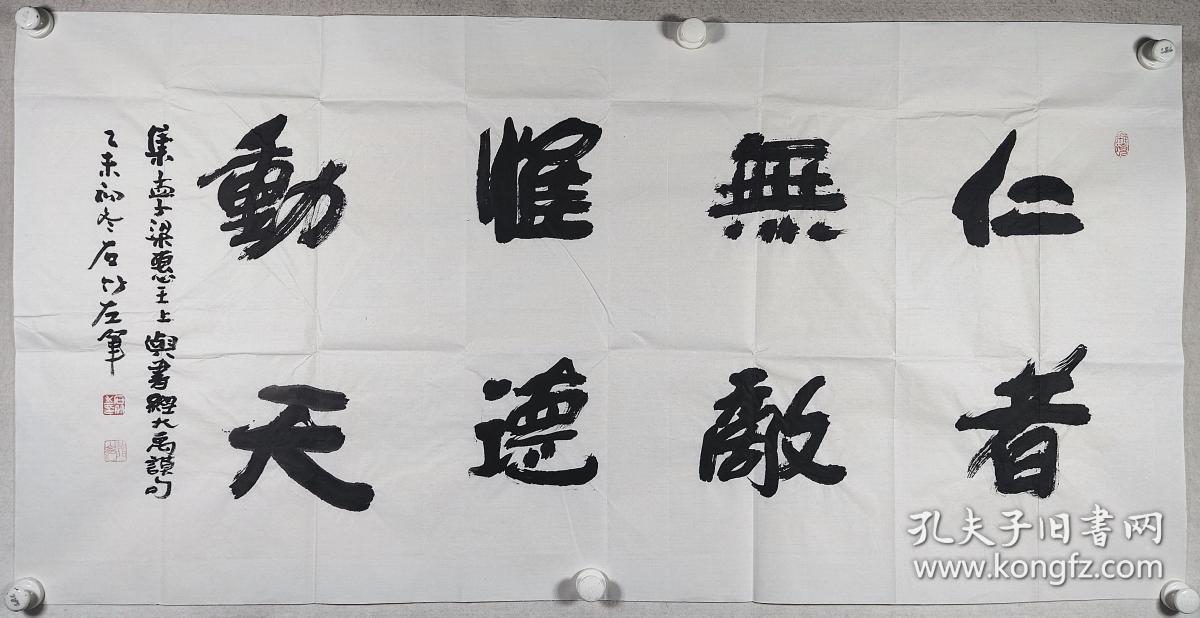 仁者
無敵
惟德
動天
集孟子梁惠王上與書經大禹謨句
乙未初冬石竹左筆
孔夫子旧書网
www.kongfz.com